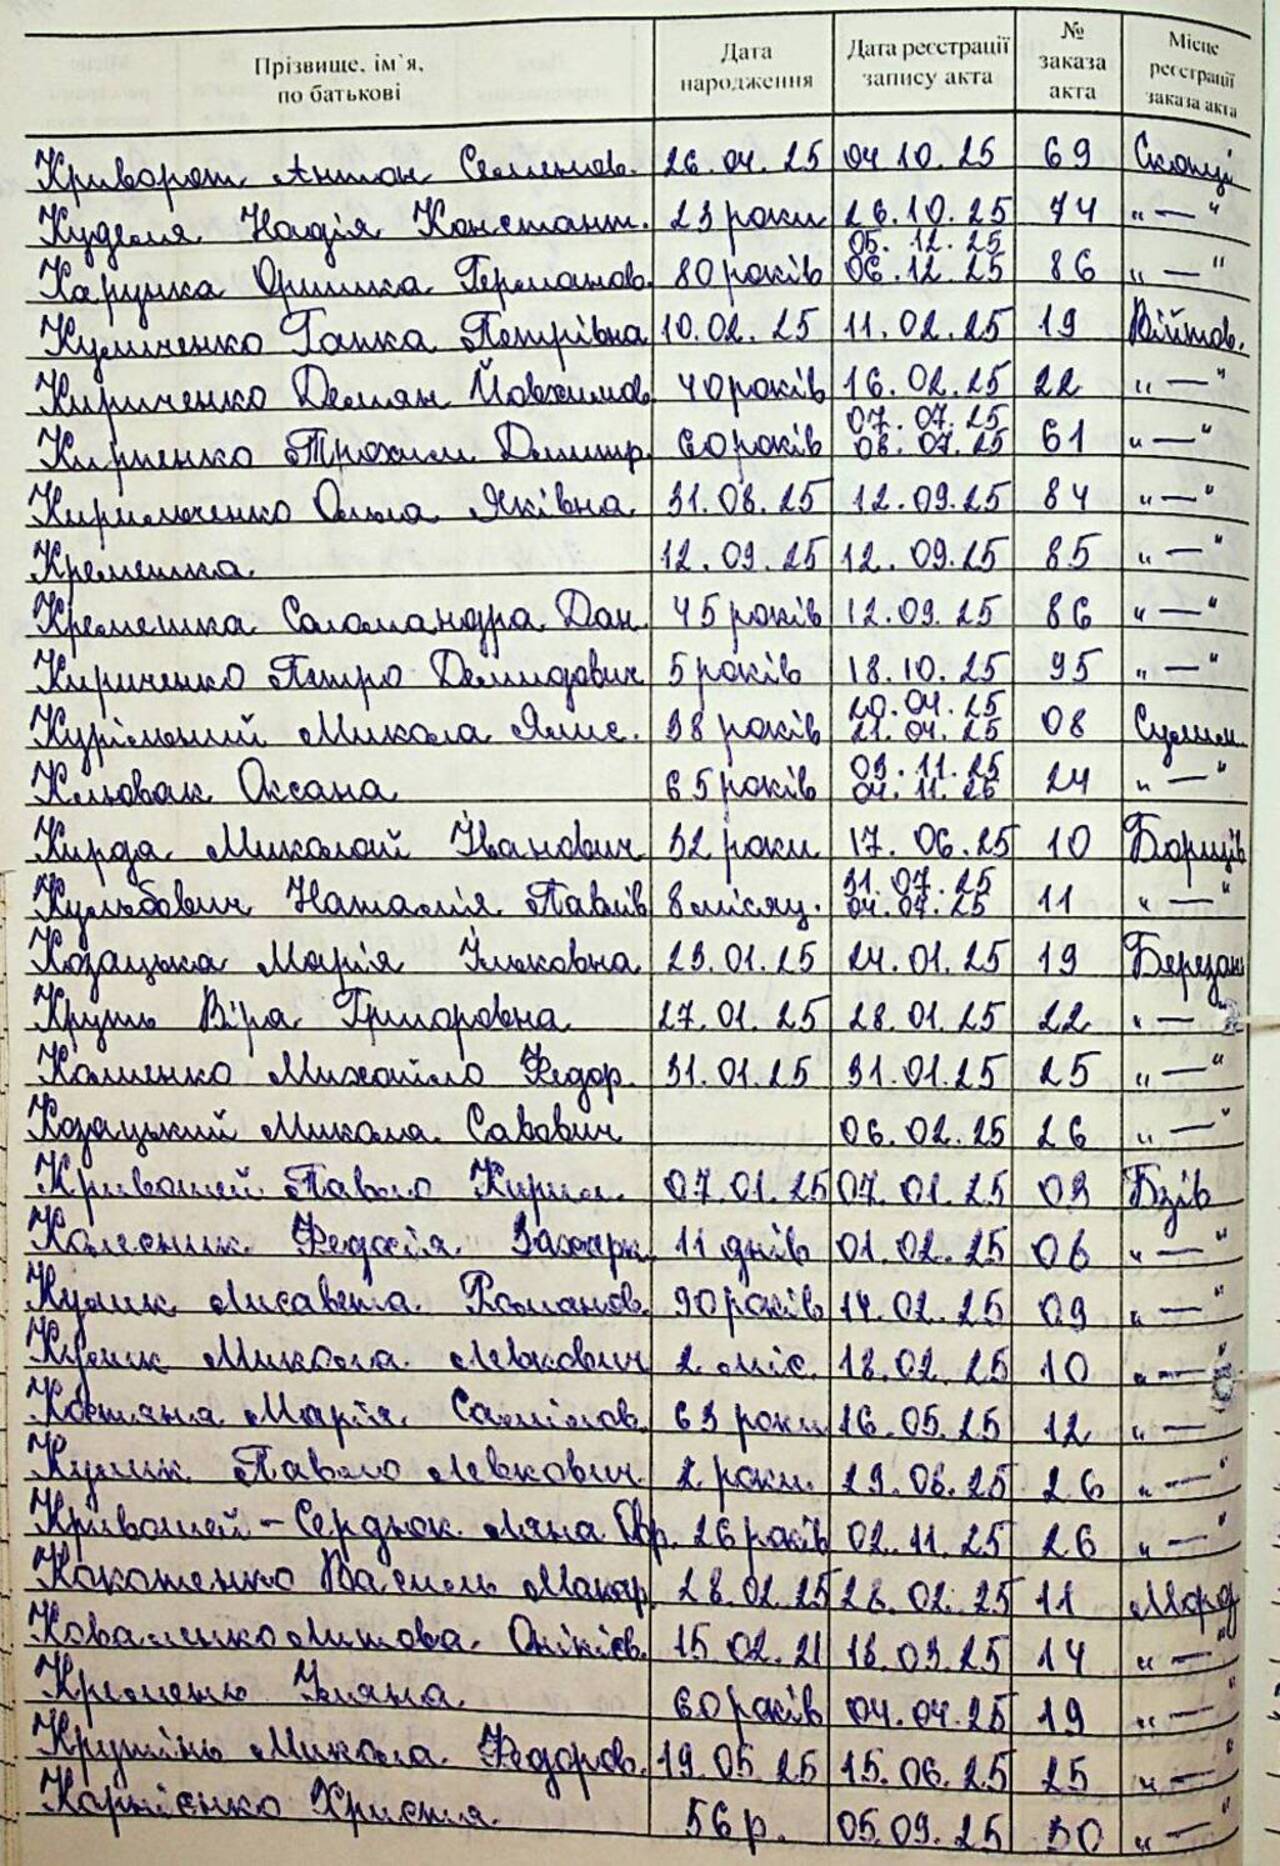 Прізвище, ім`я, по батькові | Дата народження | Дата реєстрації запису акта | № заказа акта | Місце реєстрації заказа акта
Криворот Антон Семенов. 26.04.25 04.10.25 69 Скопці
Куделя Надія Констант. 23 роки 26.10.25 74 „—“
Карунка Оришка Германов. 80 років 05.12.25 06.12.25 86 „—“
Куличенко Ганка Петрівна 10.02.25 11.02.25 19 Війтов.
Кириченко Демян Йовхимов. 40 років 16.02.25 22 „—“
Кирпенко Трохим Дмитр. 60 років 07.07.25 08.07.25 61 „—“
Кирильченко Ольга Яківна 31.08.25 12.09.25 84 „—“
Кремешка 12.09.25 12.09.25 85 „—“
Кремешка Саломандра Дан. 45 років 12.09.25 86 „—“
Кириченко Петро Демидович 5 років 18.10.25 95 „—“
Курільний Микола 38 років 20.04.25 21.04.25 08 Сулим.
Кльовак Оксана 65 років 03.11.25 04.11.25 24 „—“
Кирда Миколай Іванович 32 роки 17.06.25 10 Борщів
Кульбович Наталія Павлів 8 місяц. 31.07.25 04.07.25 11 „—“
Козацька Марія Ільковна 23.01.25 24.01.25 19 Березань
Круть Віра Григоровна 27.01.25 28.01.25 22 „—“
Калиенко Михайло Федор. 31.01.25 31.01.25 25 „—“
Козацький Микола Савович 06.02.25 26 „—“
Кривошей Павло Кирил. 07.01.25 07.01.25 03 Бзів
Колесник Федосія Захарк. 11 днів 01.02.25 06 „—“
Кулик Лисавета Романов. 90 років 14.02.25 09 „—“
Кулик Микола Левкович 2 міс. 18.02.25 10 „—“
Костяна Марія Самійлов. 63 роки 16.05.25 12 „—“
Кулик Павло Левкович 2 роки. 29.06.25 26 „—“
Кривошей - Сердюк Ляна 26 років 02.11.25 26 „—“
Кокошенко Василь Макар. 28.02.25 28.02.25 11 Морд
Коваленко Митова Онікієв. 15.02.21 18.03.25 14 „—“
Кремень Уляна 60 років 04.04.25 19 „—“
Крупінь Микола Федоров. 19.05.25 15.06.25 25 „—“
Карпієнко Христя. 56 р. 05.09.25 30 „—“